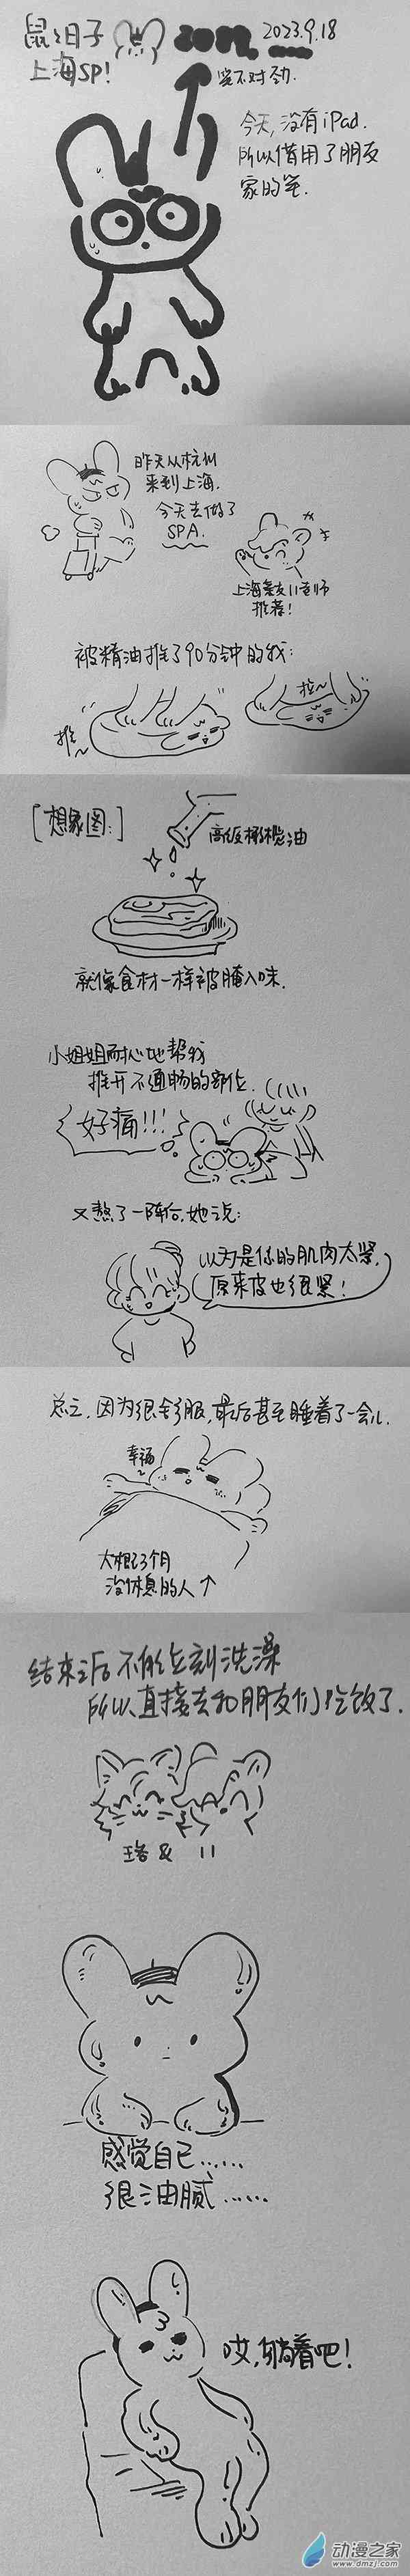 鼠鼠日子
2023.9.18
上海SP!
笔不对劲.
今天,没有iPad.
所以借用了朋友
家的笔.
昨天从杭州
来到上海.
今天去做了
SPA.
上海亲友11老师
推荐!
被精油推了90分钟的我:
推~
拉~
[想象图:]
高级橄榄油
就像食材一样被腌入味.
小姐姐耐心地帮我
推开不通畅的部位.
好痛!!!
又熬了一阵后,她说:
以为是你的肌肉太紧,
原来皮也很紧!
总之,因为很舒服,最后甚至睡着了一会儿.
幸福~
大概3个月
没休息的人↑
结束之后不能立刻洗澡
所以,直接去和朋友们吃饭了.
珞 & 11
感觉自己......
很油腻......
哎,躺着吧!
动漫之家
www.dmzj.com